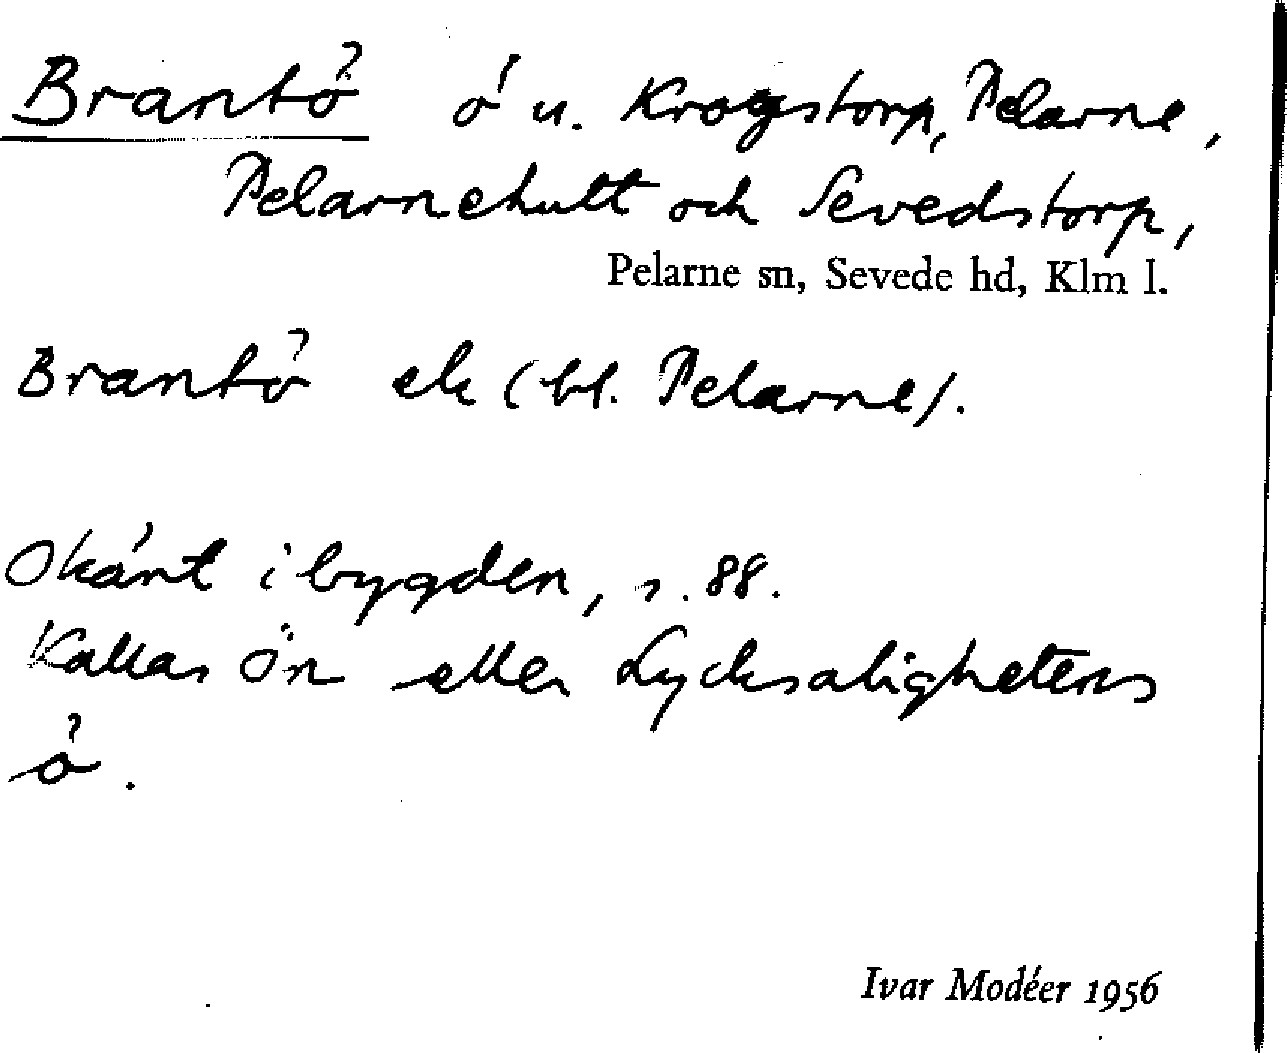 Brantö ö u. Krogstorp, Pelarne,
Pelarnehult och Sevedstorp,
Pelarne sn, Sevede hd, Klm l.
Brantö ek (bl. Pelarne).
Okänt i bygden, s. 88.
Kallas Ön eller Lycksalighetens
ö.
Ivar Modéer 1956